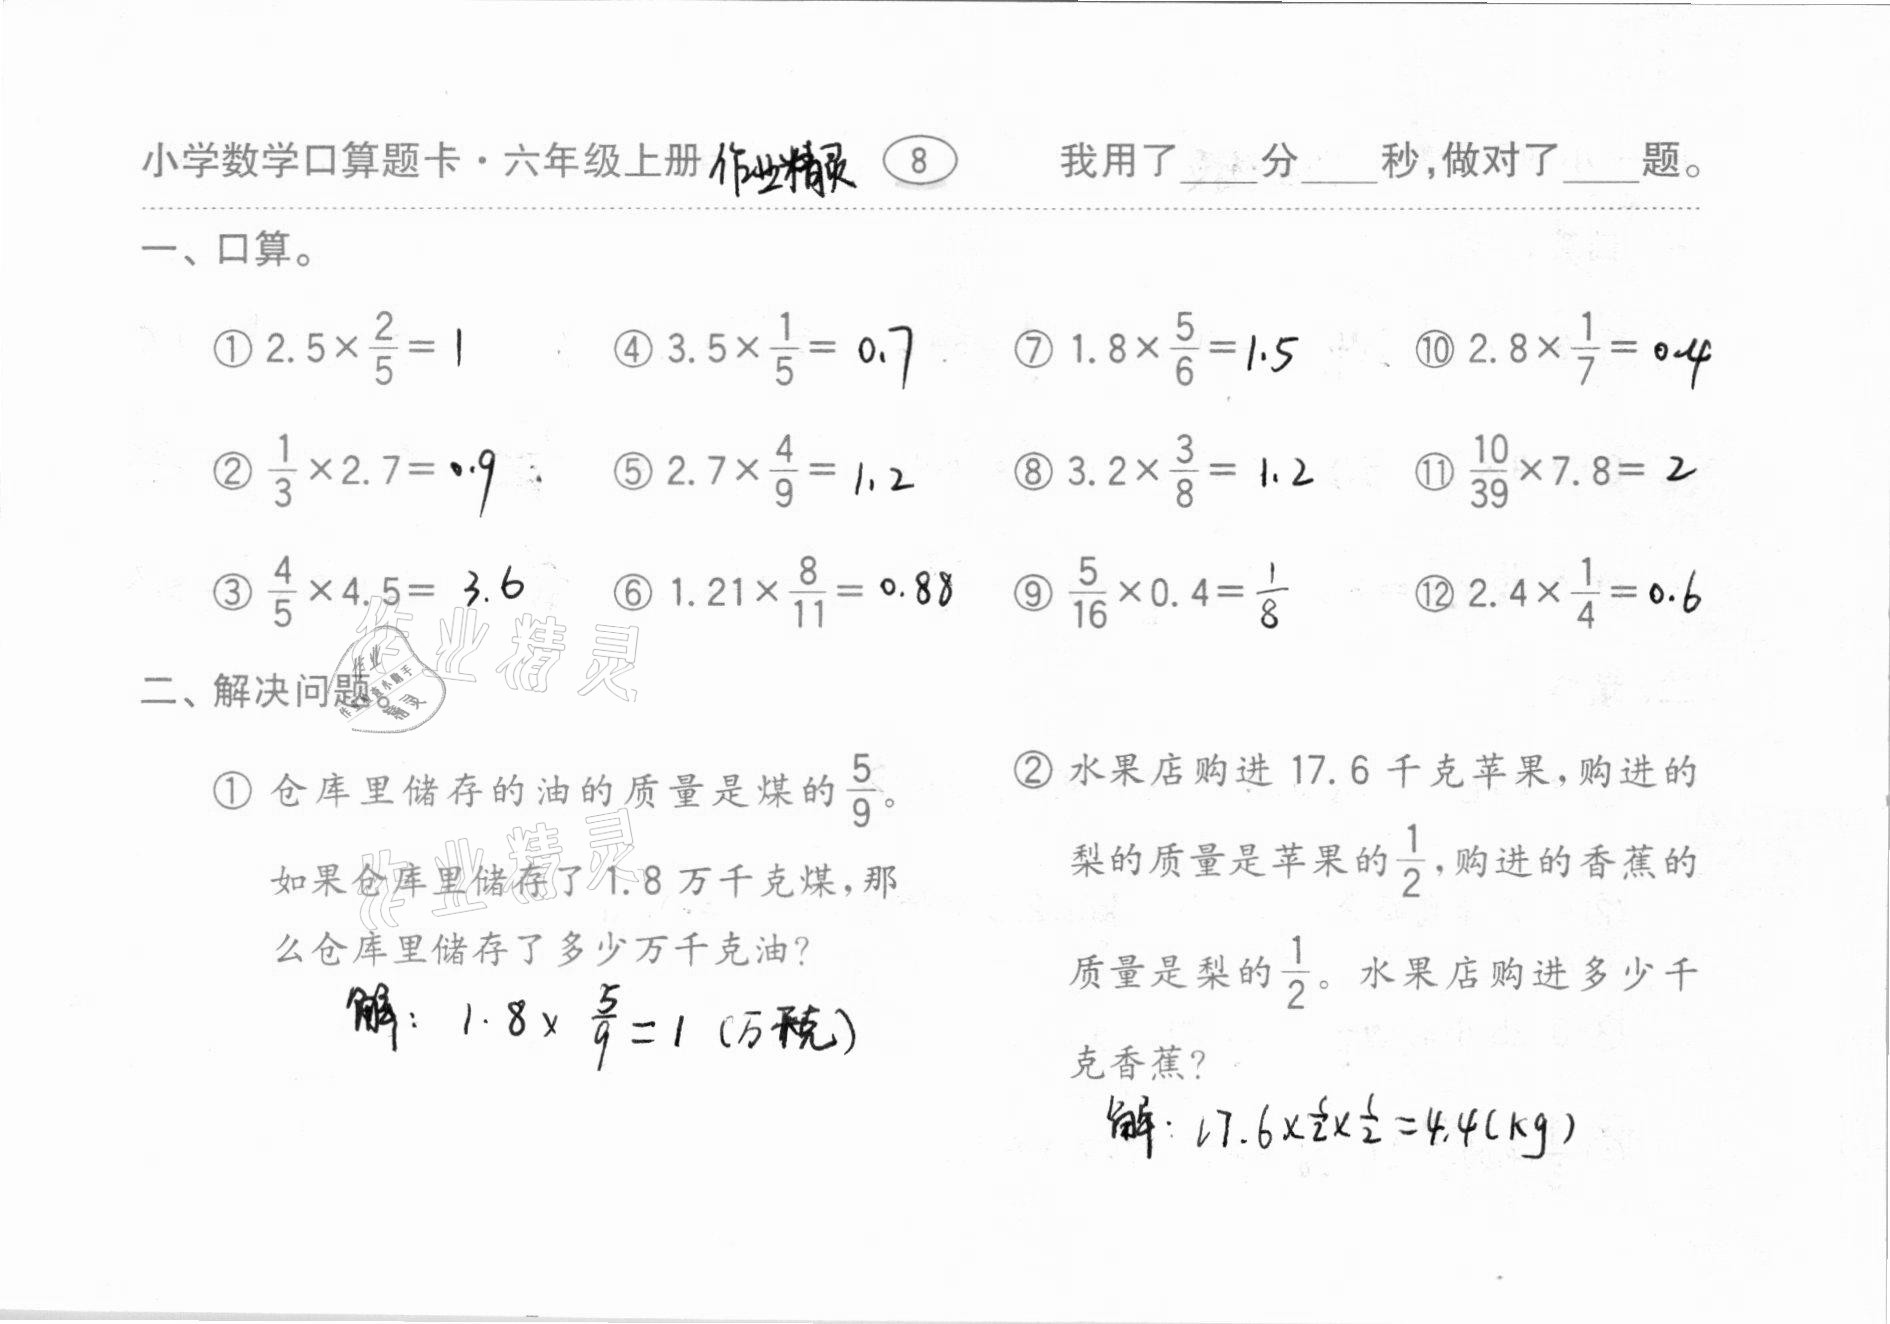 小学数学口算题卡·六年级上册 作业精灵 8 我用了____分____秒,做对了____题。
一、口算。
① 2.5×2/5= 1 ④ 3.5×1/5= 0.7 ⑦ 1.8×5/6= 1.5 ⑩ 2.8×1/7= 0.4
② 1/3×2.7= 0.9 ⑤ 2.7×4/9= 1.2 ⑧ 3.2×3/8= 1.2 ⑪ 10/39×7.8= 2
③ 4/5×4.5= 3.6 ⑥ 1.21×8/11= 0.88 ⑨ 5/16×0.4= 1/8 ⑫ 2.4×1/4= 0.6
作业精灵
二、解决问题。
作业
作业检查小助手
精灵
① 仓库里储存的油的质量是煤的5/9。
如果仓库里储存了1.8万千克煤,那
么仓库里储存了多少万千克油?
作业精灵
解: 1.8×5/9=1 (万千克)
② 水果店购进17.6千克苹果,购进的
梨的质量是苹果的1/2,购进的香蕉的
质量是梨的1/2。水果店购进多少千
克香蕉?
解: 17.6×1/2×1/2=4.4(kg)